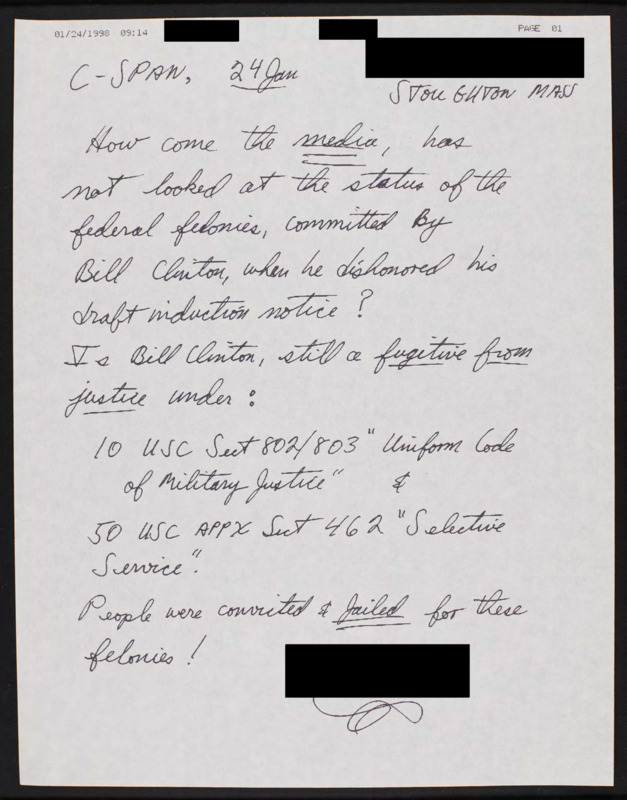 01/24/1998 09:14 PAGE 01
C-SPAN, 24 Jan
STOUGHTON MASS
How come the media, has
not looked at the status of the
federal felonies, committed By
Bill Clinton, when he dishonored his
draft induction notice?
Is Bill Clinton, still a fugitive from
justice under:
10 USC Sect 802/803 "Uniform Code
of Military Justice" &
50 USC APPX Sect 462 "Selective
Service".
People were convicted & Jailed for these
felonies!